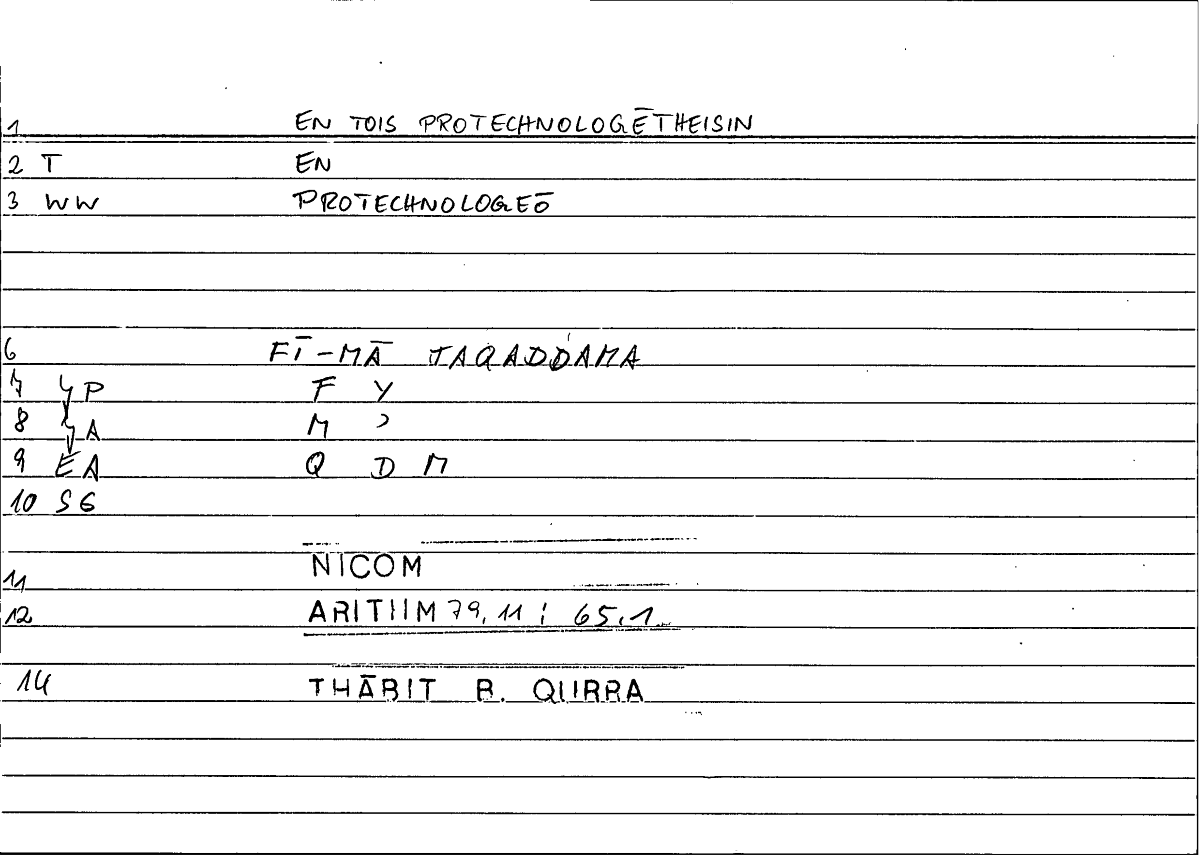 1 EN TOIS PROTECHNOLOGĒTHEISIN
2 T EN
3 WW PROTECHNOLOGEŌ
6 FĪ-MĀ TAQADDAMA
7 P F Y
8 A M ɔ
9 EA Q D M
10 SG
11 NICOM
12 ARITHM 79,11 ; 65,1
14 THĀBIT B. QURRA